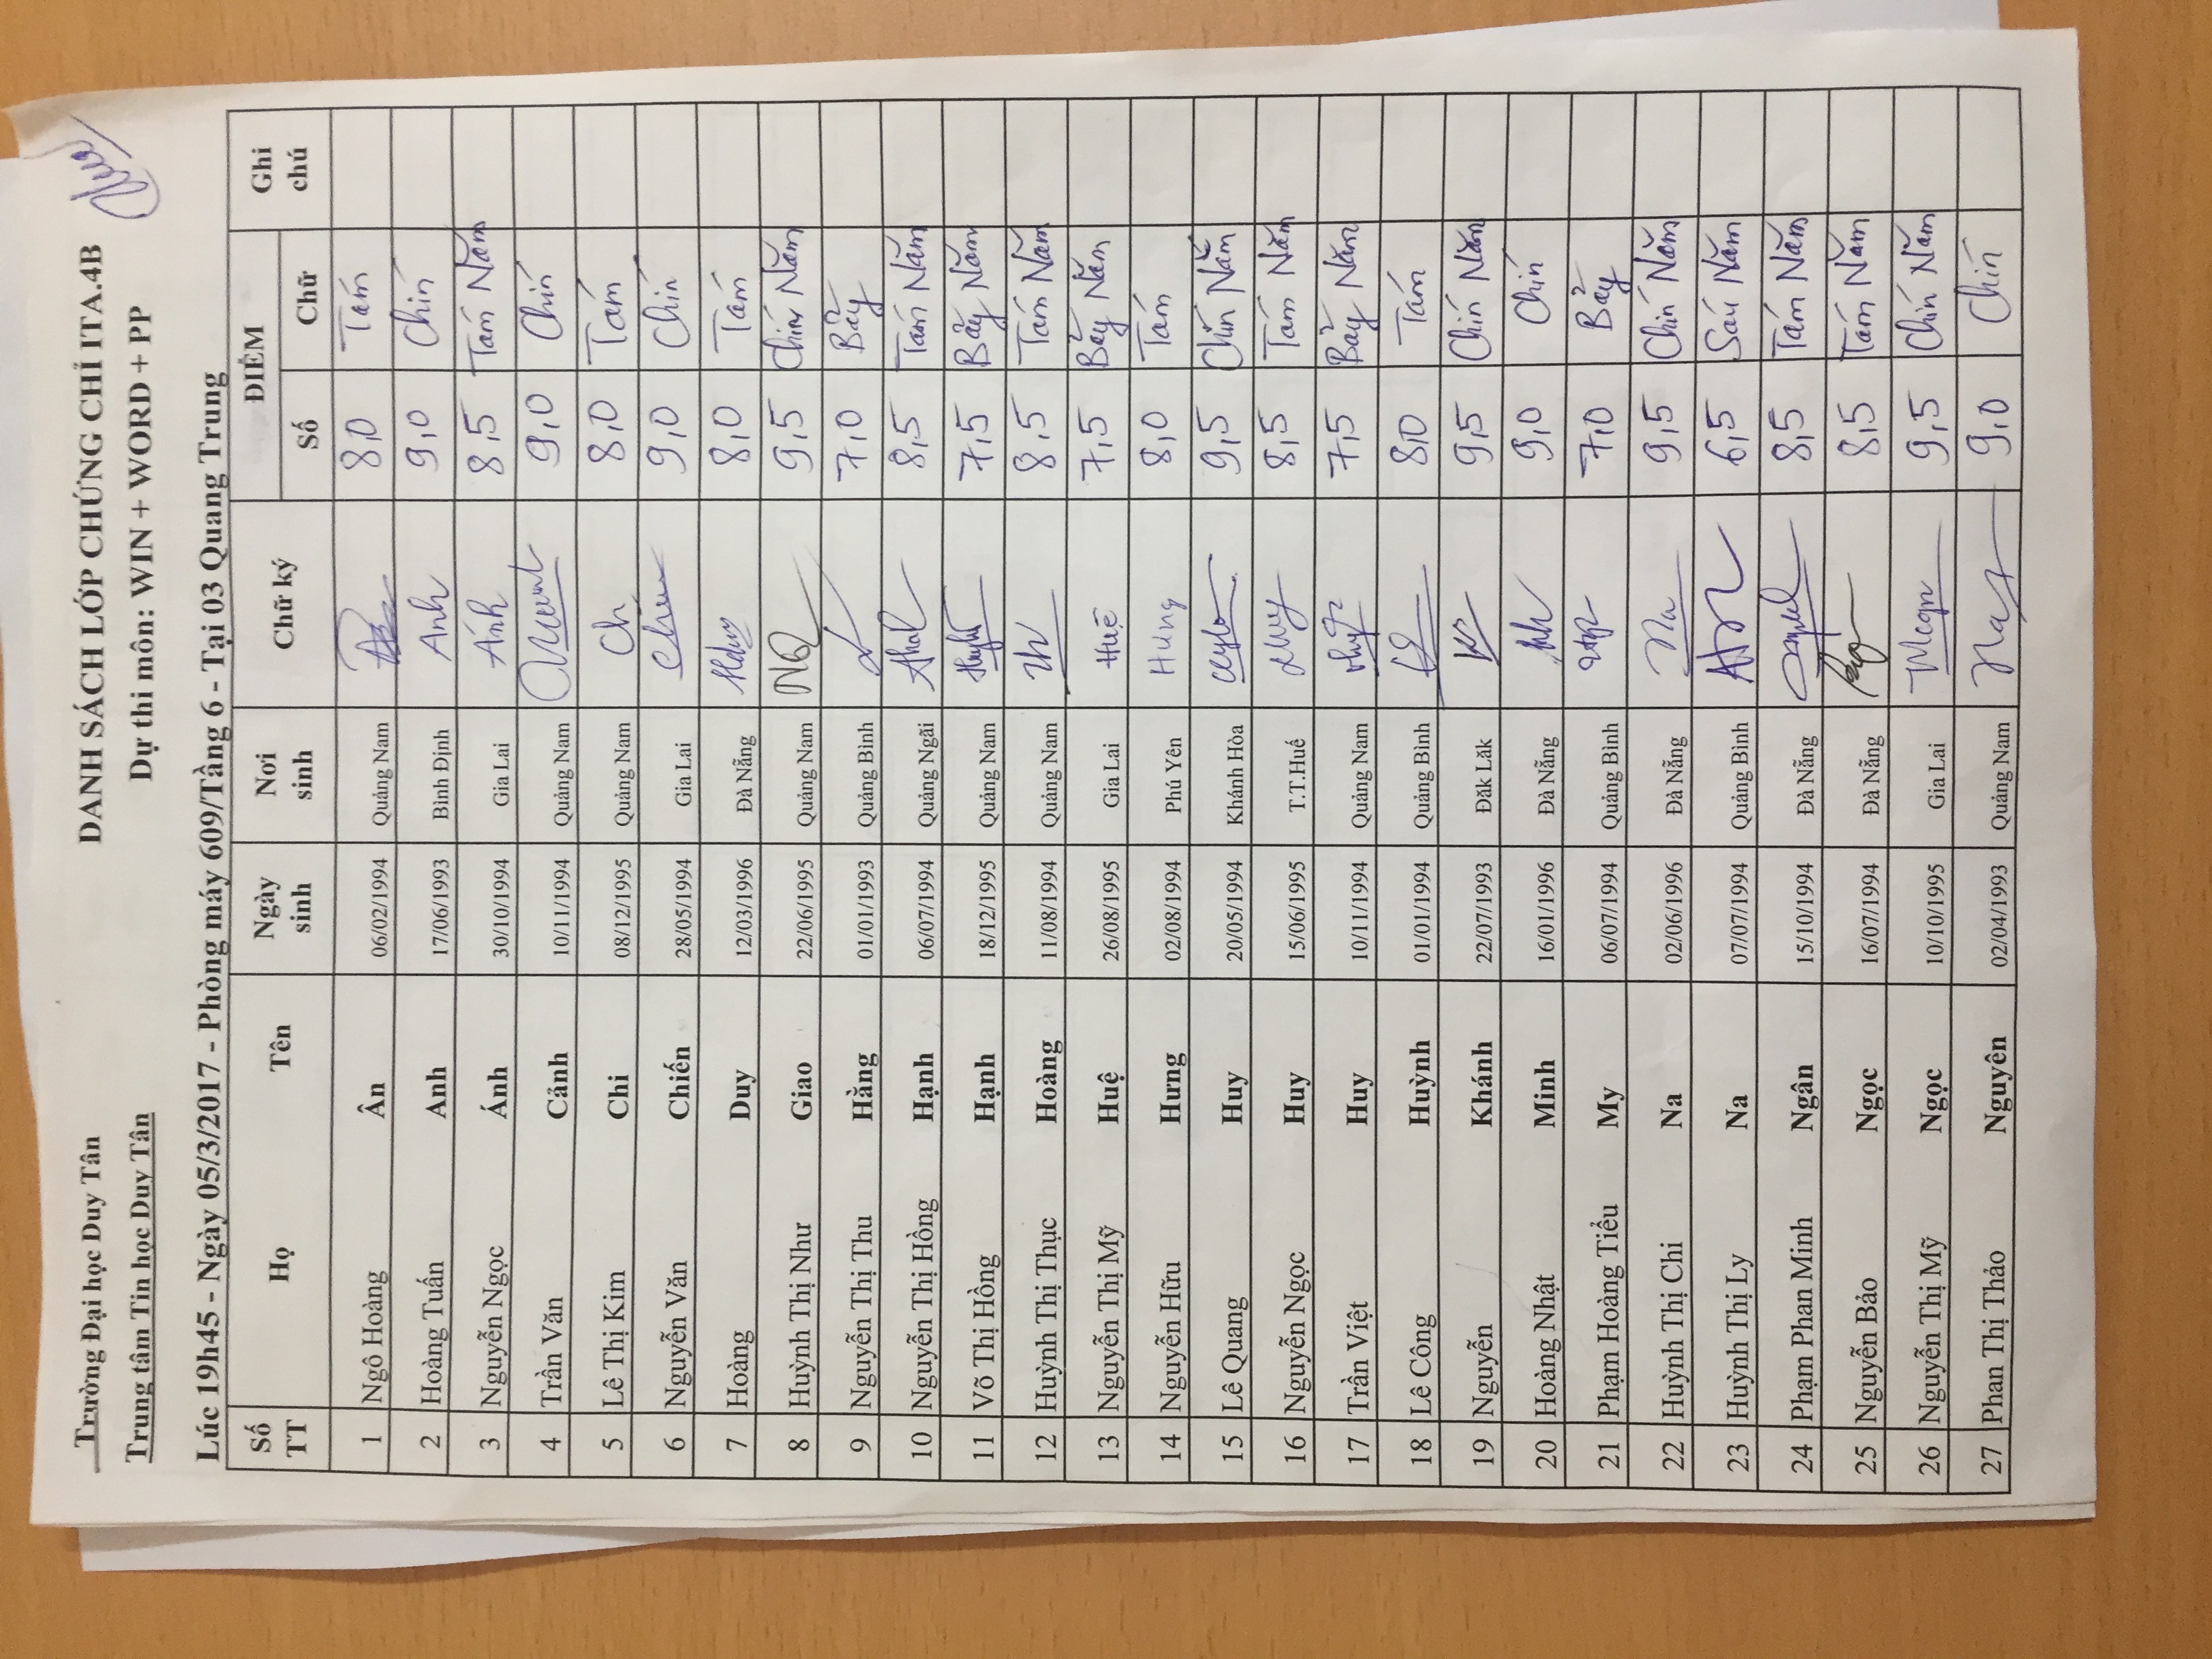 Trường Đại học Duy Tân
Trung tâm Tin học Duy Tân
DANH SÁCH LỚP CHỨNG CHỈ ITA.4B
Dự thi môn: WIN + WORD + PP
Lúc 19h45 - Ngày 05/3/2017 - Phòng máy 609/Tầng 6 - Tại 03 Quang Trung
Số TT Họ Tên Ngày sinh Nơi sinh Chữ ký ĐIỂM Ghi chú
Số Chữ
1 Ngô Hoàng Ân 06/02/1994 Quảng Nam 8,0 Tám
2 Hoàng Tuấn Anh 17/06/1993 Bình Định Anh 9,0 Chín
3 Nguyễn Ngọc Ánh 30/10/1994 Gia Lai Ánh 8,5 Tám Năm
4 Trần Văn Cảnh 10/11/1994 Quảng Nam 9,0 Chín
5 Lê Thị Kim Chi 08/12/1995 Quảng Nam Chi 8,0 Tám
6 Nguyễn Văn Chiến 28/05/1994 Gia Lai 9,0 Chín
7 Hoàng Duy 12/03/1996 Đà Nẵng 8,0 Tám
8 Huỳnh Thị Như Giao 22/06/1995 Quảng Nam 9,5 Chín Năm
9 Nguyễn Thị Thu Hằng 01/01/1993 Quảng Bình 7,0 Bảy
10 Nguyễn Thị Hồng Hạnh 06/07/1994 Quảng Ngãi 8,5 Tám Năm
11 Võ Thị Hồng Hạnh 18/12/1995 Quảng Nam 7,5 Bảy Năm
12 Huỳnh Thị Thục Hoàng 11/08/1994 Quảng Nam 8,5 Tám Năm
13 Nguyễn Thị Mỹ Huệ 26/08/1995 Gia Lai Huệ 7,5 Bảy Năm
14 Nguyễn Hữu Hưng 02/08/1994 Phú Yên Hưng 8,0 Tám
15 Lê Quang Huy 20/05/1994 Khánh Hòa 9,5 Chín Năm
16 Nguyễn Ngọc Huy 15/06/1995 T.T.Huế 8,5 Tám Năm
17 Trần Việt Huy 10/11/1994 Quảng Nam 7,5 Bảy Năm
18 Lê Công Huỳnh 01/01/1994 Quảng Bình 8,0 Tám
19 Nguyễn Khánh 22/07/1993 Đăk Lăk 9,5 Chín Năm
20 Hoàng Nhật Minh 16/01/1996 Đà Nẵng 9,0 Chín
21 Phạm Hoàng Tiểu My 06/07/1994 Quảng Bình 7,0 Bảy
22 Huỳnh Thị Chi Na 02/06/1996 Đà Nẵng Na 9,5 Chín Năm
23 Huỳnh Thị Ly Na 07/07/1994 Quảng Bình 6,5 Sáu Năm
24 Phạm Phan Minh Ngân 15/10/1994 Đà Nẵng 8,5 Tám Năm
25 Nguyễn Bảo Ngọc 16/07/1994 Đà Nẵng 8,5 Tám Năm
26 Nguyễn Thị Mỹ Ngọc 10/10/1995 Gia Lai 9,5 Chín Năm
27 Phan Thị Thảo Nguyên 02/04/1993 Quảng Nam 9,0 Chín